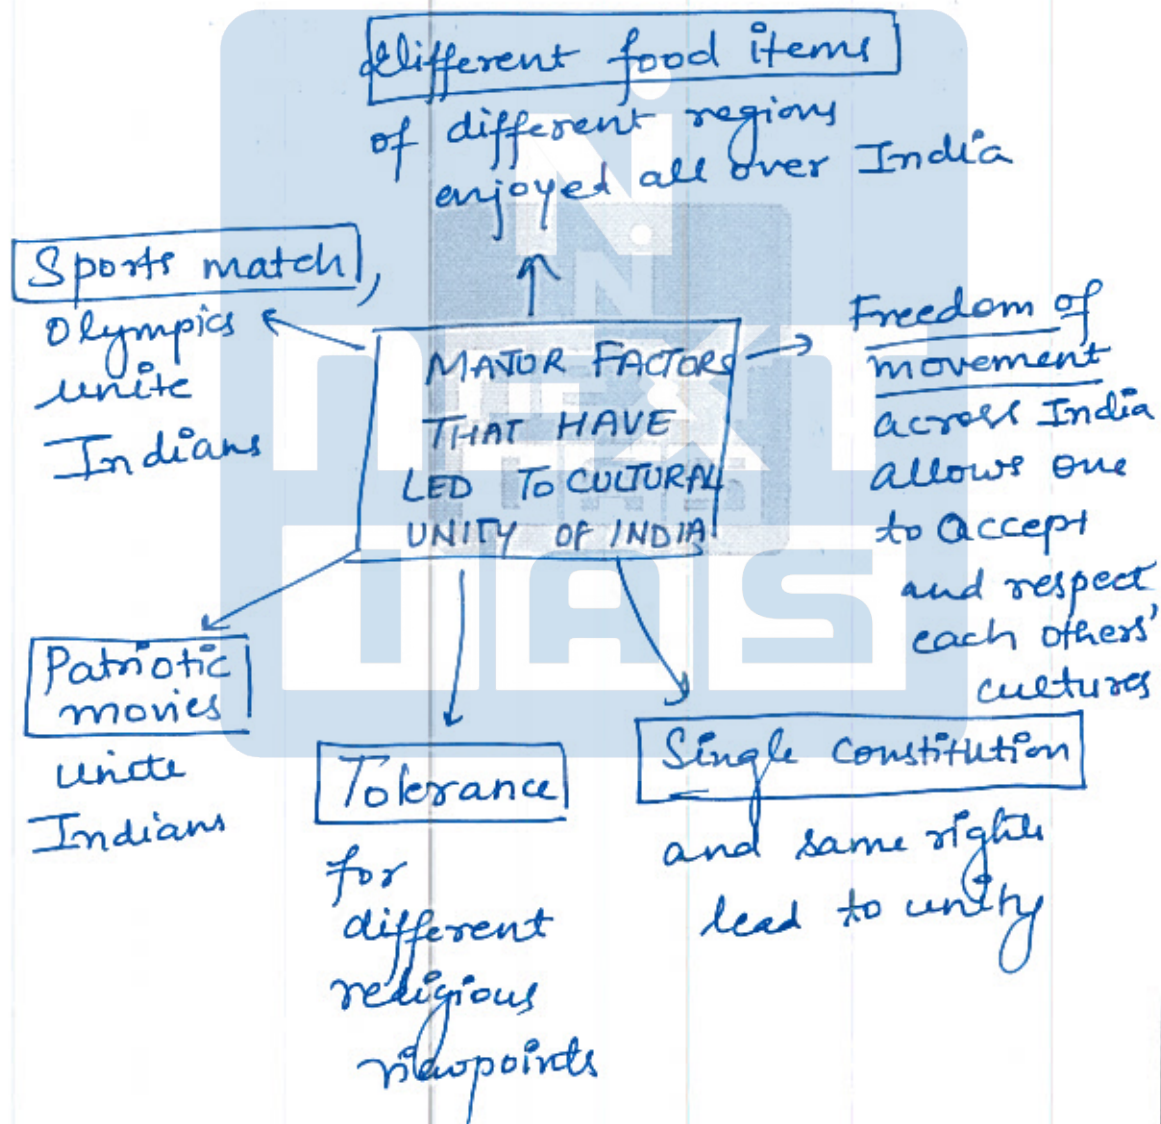 different food items
of different regions
enjoyed all over India
Sports match,
Olympics
unite
Indians
MAJOR FACTORS
THAT HAVE
LED TO CULTURAL
UNITY OF INDIA
Freedom of
movement
across India
allows one
to accept
and respect
each others'
cultures
Patriotic
movies
unite
Indians
Tolerance
for
different
religious
viewpoints
Single Constitution
and same rights
lead to unity
NEXT
IAS